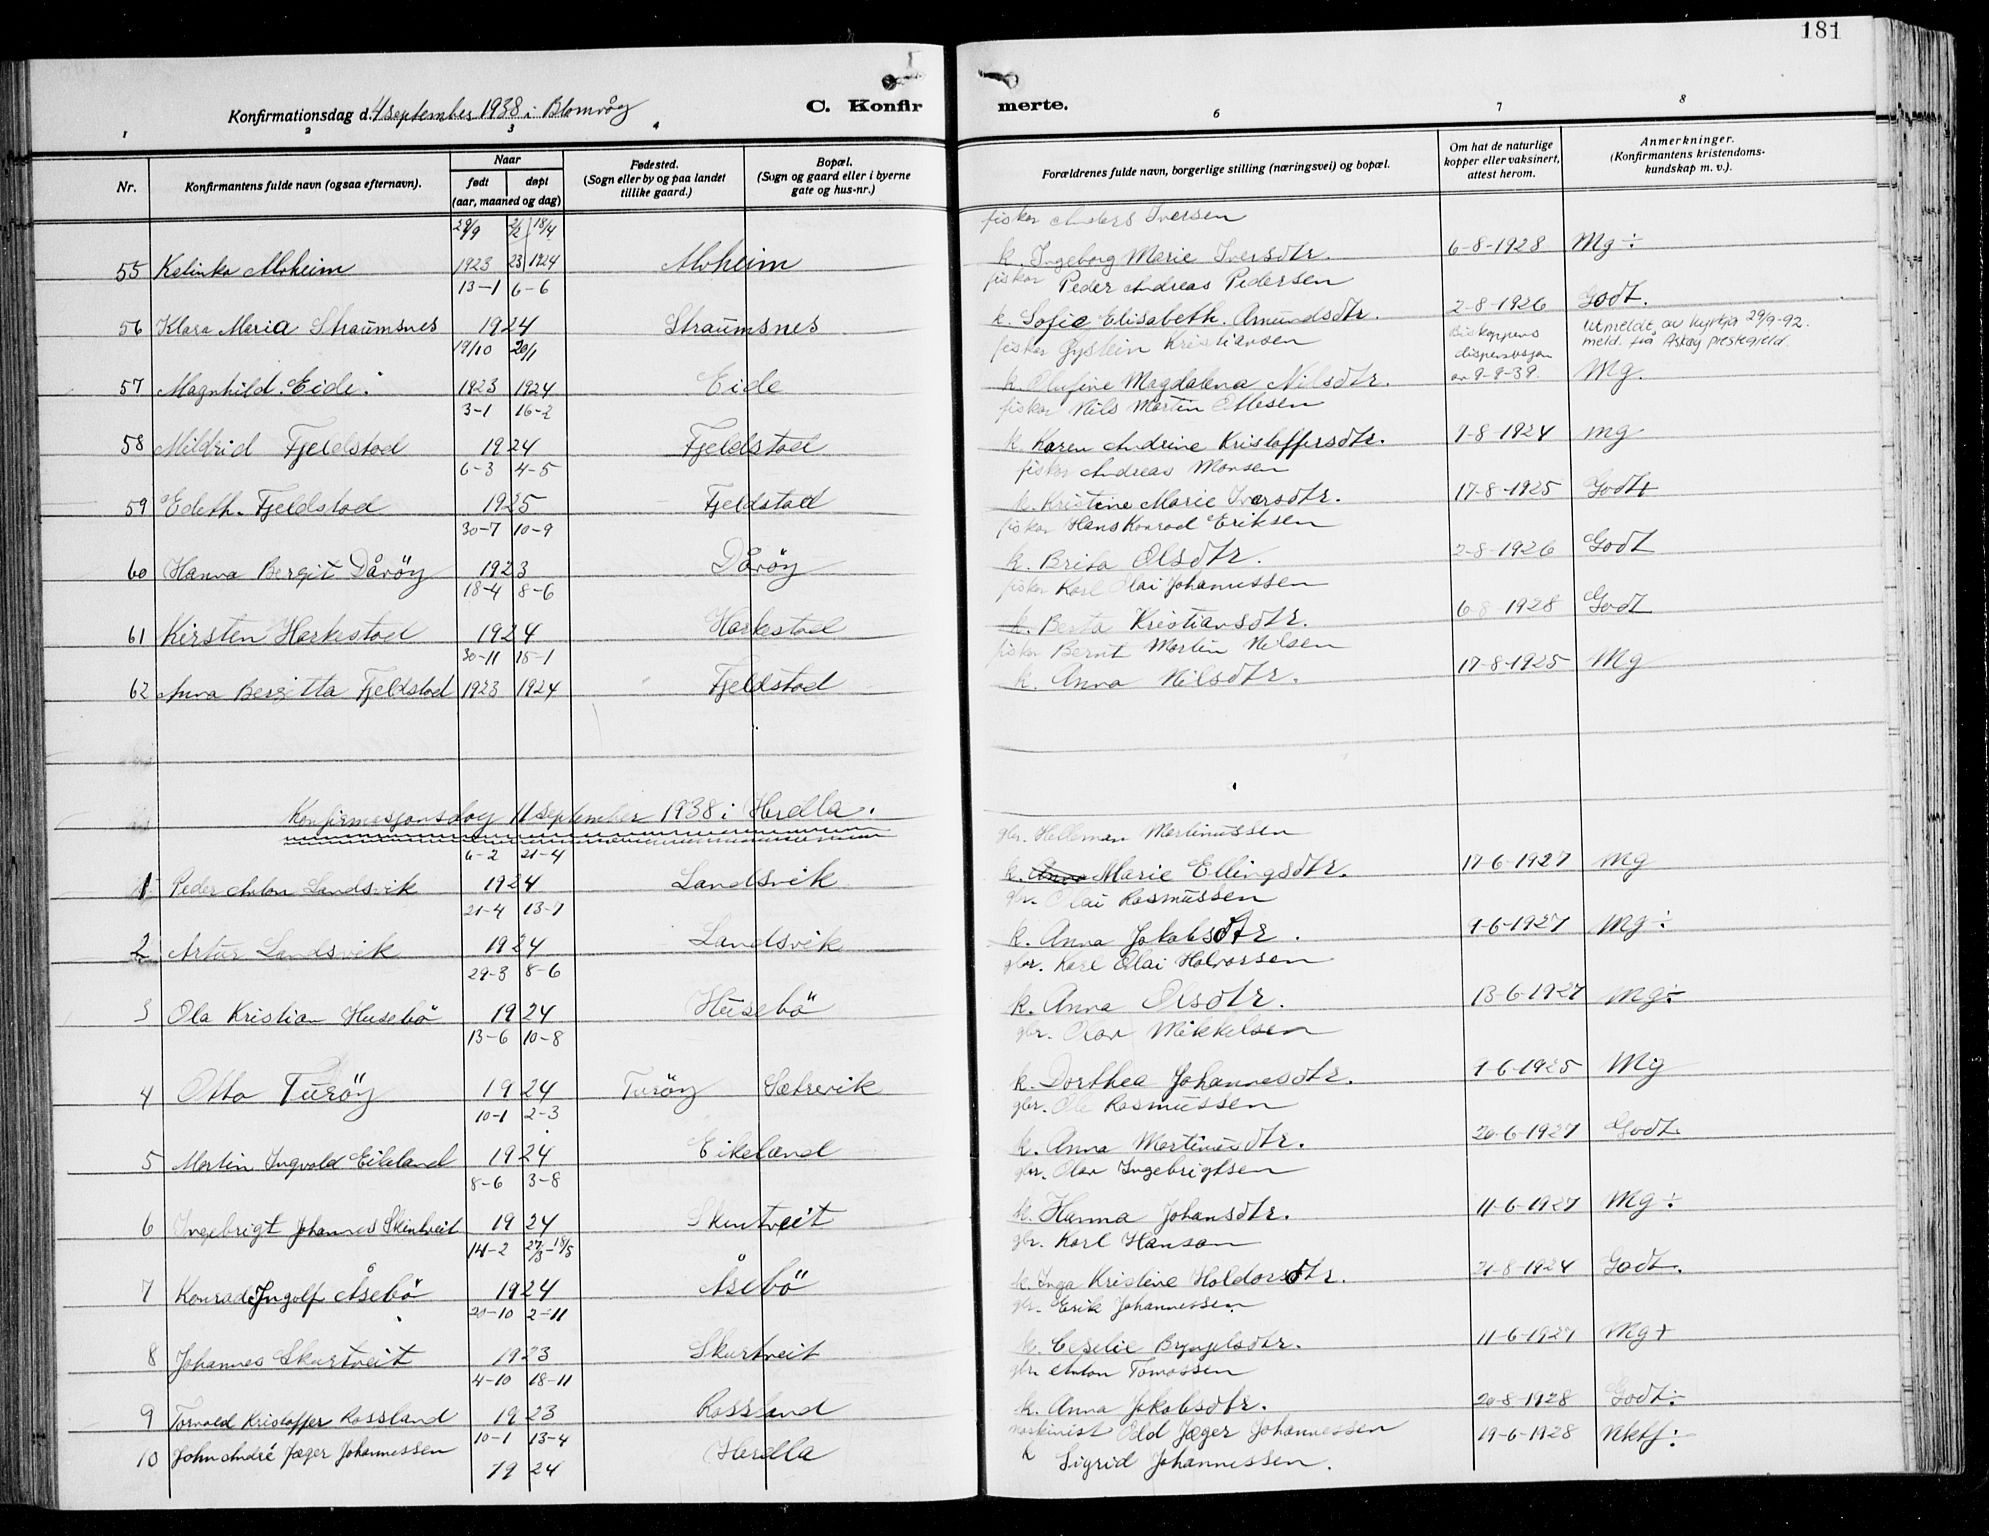 181
Konfirmationsdag d. 4 september 1938 i Blomvåg
C. Konfirmerte.
1 2 3 4 6 7 8
Nr.
Konfirmantens fulde navn (ogsaa efternavn).
Naar
født døpt
(aar, maaned og dag)
Fødested.
(Sogn eller by og paa landet
tillike gaard.)
Bopæl.
(Sogn og gaard eller i byerne
gate og hus-nr.)
Forældrenes fulde navn, borgerlige stilling (næringsvei) og bopæl.
Om hat de naturlige
kopper eller vaksinert,
attest herom.
Anmerkninger.
(Konfirmantens kristendoms-
kundskap m. v.).
29/9 2/12 18/4 fisker Anders Iversen
55 Kalinka Moheim 1923 23 1924 Moheim k. Ingeborg Marie Iversdtr. 6-8-1928 Mg÷
13-1 6-6 fisker Peder Andreas Pedersen
56 Klara Maria Straumsnes 1924 Straumsnes k. Sofie Elisabeth Amundsdtr. 2-8-1926 Godt.
19/10 20/1 fisker Øystein Kristiansen Biskoppens dispensasjon av 9-9-39 Utmeldt av kyrkja 29/9-92. meld. frå Askøy prestegjeld.
57 Magnhild Eide. 1923 1924 Eide k. Olufine Magdalena Nilsdtr. Mg.
3-1 16-2 fisker Nils Martin Ottesen
58 Mildrid Fjeldstad 1924 Fjeldstad k. Karen Andrine Kristoffersdtr. 9-8-1924 mg
6-3 4-5 fisker Andreas Monsen
59 Edith Fjeldstad 1925 Fjeldstad k. Kristine Marie Iversdtr. 17-8-1925 Godt+
30-7 10-9 fisker Hans Konrad Eriksen
60 Hanna Bergit Dåröy 1923 Dåröy k. Brita Olsdtr. 2-8-1926 Godt
18-4 8-6 fisker Karl Olai Johannessen
61 Kirsten Harkestad 1924 Harkestad k. Berta Kristiansdtr. 6-8-1928 Godt
30-11 15-1 fisker Bernt Martin Nilsen
62 Anna Bergitta Fjeldstad 1923 1924 Fjeldstad k. Anna Nilsdtr. 17-8-1925 Mg
Konfirmasjonsdag 11 september 1938 i Herdla.
6-2 21-4 gbr. Helleman Martinussen
1 Peder Anton Landsvik 1924 Landsvik k. Anna Marie Ellingsdtr. 17-6-1927 mg
21-4 13-7 gbr. Olai Rasmussen
2 Artur Landsvik 1924 Landsvik k. Anna Jakobsdtr. 9-6-1927 Mg÷
29-3 8-6 gbr. Karl Olai Halvorsen
3 Ola Kristian Husebö 1924 Husebö k. Anna Olsdtr. 13-6-1927 Mg÷
13-6 10-8 gbr. Olav Mikkelsen
4 Otto Turöy 1924 Turöy Sætrevik k. Dorthea Johannesdtr. 9-6-1925 Mg
10-1 2-3 gbr. Ole Rasmussen
5 Martin Ingvald Eikeland 1924 Eikeland k. Anna Martinusdtr. 20-6-1927 Godt
8-6 3-8 gbr. Olav Ingebrigtsen
6 Ingebrigt Johannes Skurtveit 1924 Skurtveit k. Hanna Johansdtr. 11-6-1927 Mg÷
14-2 27/3-18/5 gbr. Karl Hanson
7 Konrad Ingolf Åsebö 1924 Åsebö k. Inga Kristine Haldorsdtr. 21-8-1924 Godt.
20-10 2-11 gbr. Erik Johannessen
8 Johannes Skurtveit 1923 Skurtveit k. Ceselie Brynjelsdtr. 11-6-1927 Mg+
4-10 18-11 gbr. Anton Tomassen
9 Torvald Kristoffer Rossland 1923 Rossland k. Anna Jakobsdtr. 20-8-1928 Godt÷
10-1 13-4 maskinist Odd Jæger Johannessen
10 John André Jæger Johannessen 1924 Herdla k Sigrid Johannessen. 19-6-1928 Nktf÷